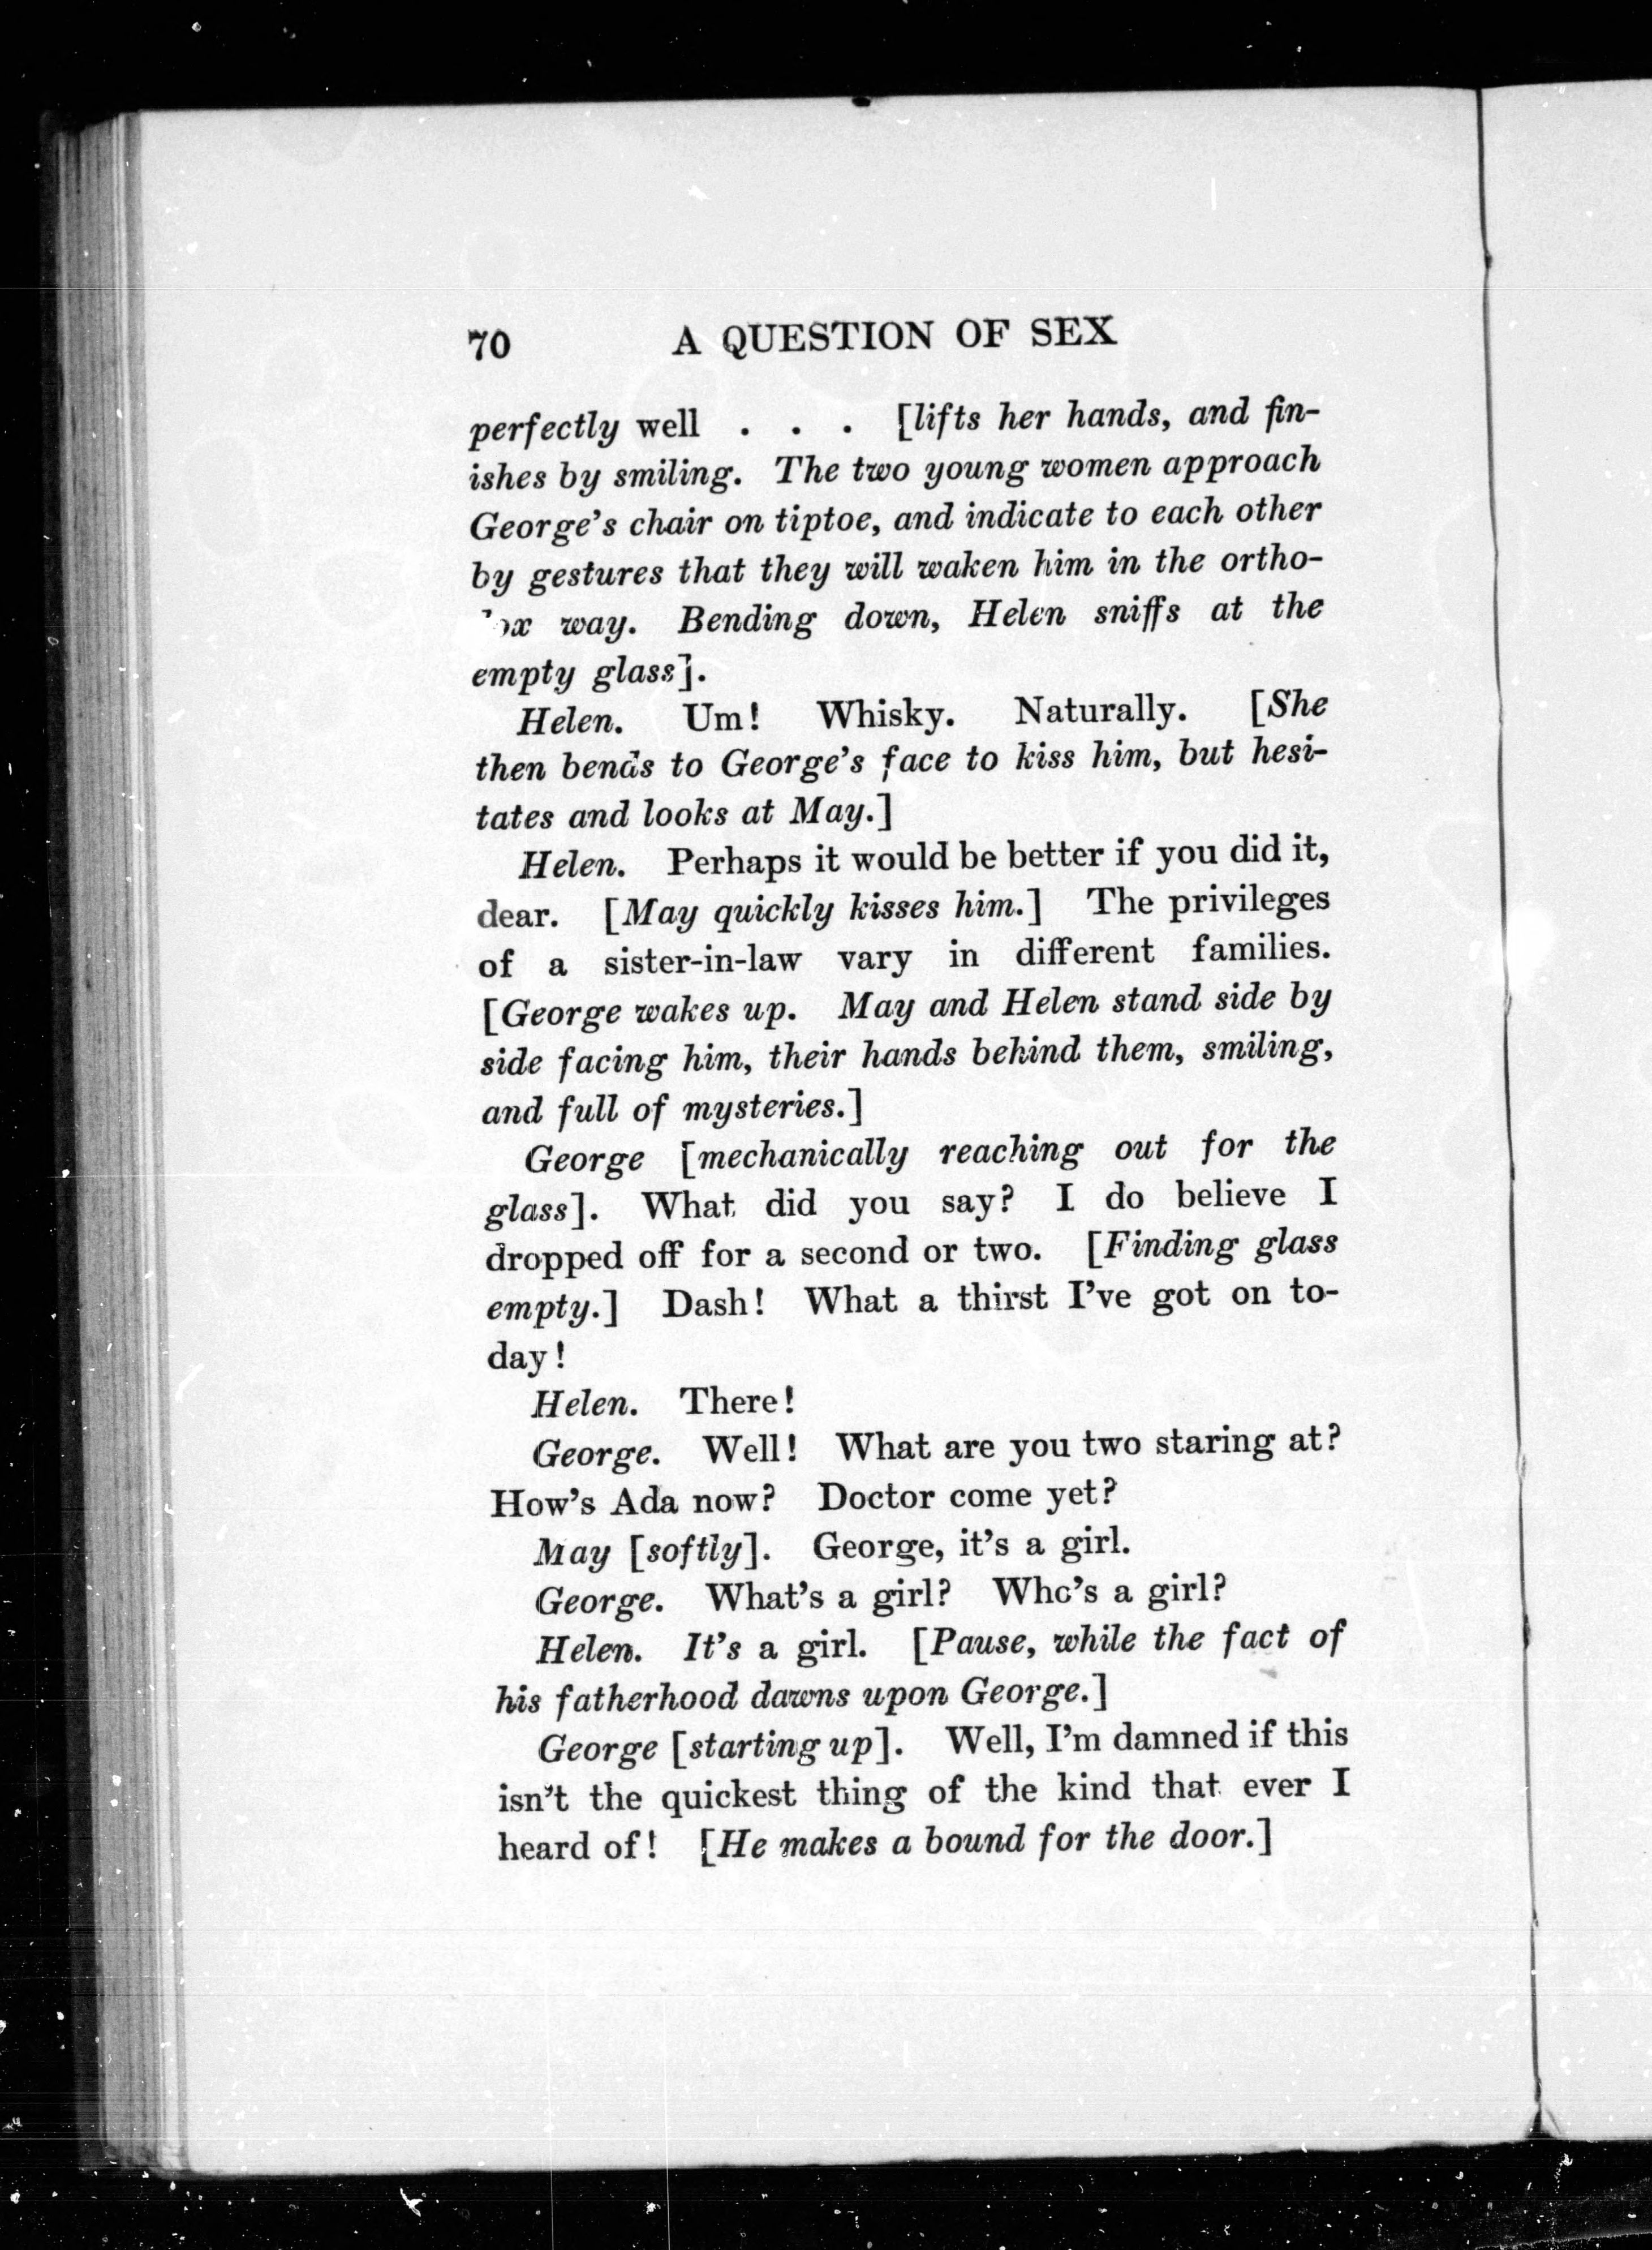 70 A QUESTION OF SEX
perfectly well . . . [lifts her hands, and fin-
ishes by smiling. The two young women approach
George's chair on tiptoe, and indicate to each other
by gestures that they will waken him in the ortho-
way. Bending down, Helen sniffs at the
empty glass].
Helen. Um! Whisky. Naturally. [She
then bends to George's face to kiss him, but hesi-
tates and looks at May.]
Helen. Perhaps it would be better if you did it,
dear. [May quickly kisses him.] The privileges
of a sister-in-law vary in different families.
[George wakes up. May and Helen stand side by
side facing him, their hands behind them, smiling,
and full of mysteries.]
George [mechanically reaching out for the
glass]. What did you say? I do believe I
dropped off for a second or two. [Finding glass
empty.] Dash! What a thirst I've got on to-
day!
Helen. There!
George. Well! What are you two staring at?
How's Ada now? Doctor come yet?
May [softly]. George, it's a girl.
George. What's a girl? Who's a girl?
Helen. It's a girl. [Pause, while the fact of
his fatherhood dawns upon George.]
George [starting up]. Well, I'm damned if this
isn't the quickest thing of the kind that ever I
heard of! [He makes a bound for the door.]